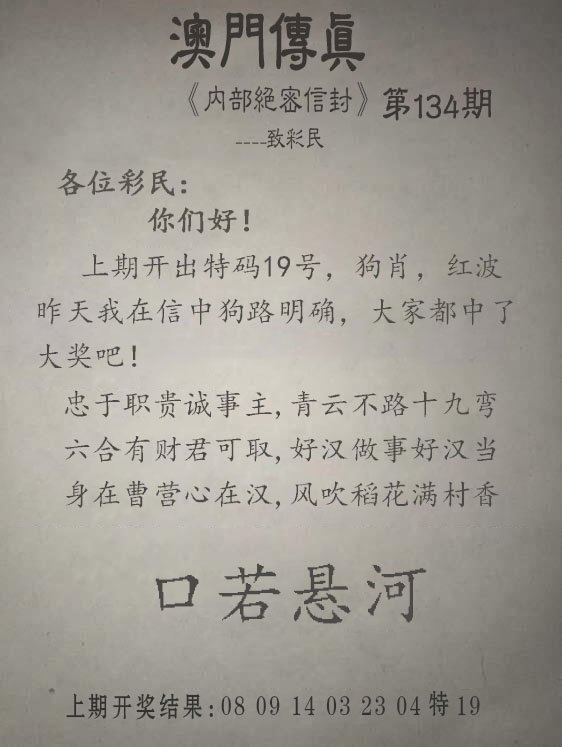 澳門傳真
《内部絕密信封》第134期
----致彩民
各位彩民：
你们好！
上期开出特码19号，狗肖，红波
昨天我在信中狗路明确，大家都中了
大奖吧！
忠于职贵诚事主,青云不路十九弯
六合有财君可取,好汉做事好汉当
身在曹营心在汉,风吹稻花满村香
口若悬河
上期开奖结果:08 09 14 03 23 04特19